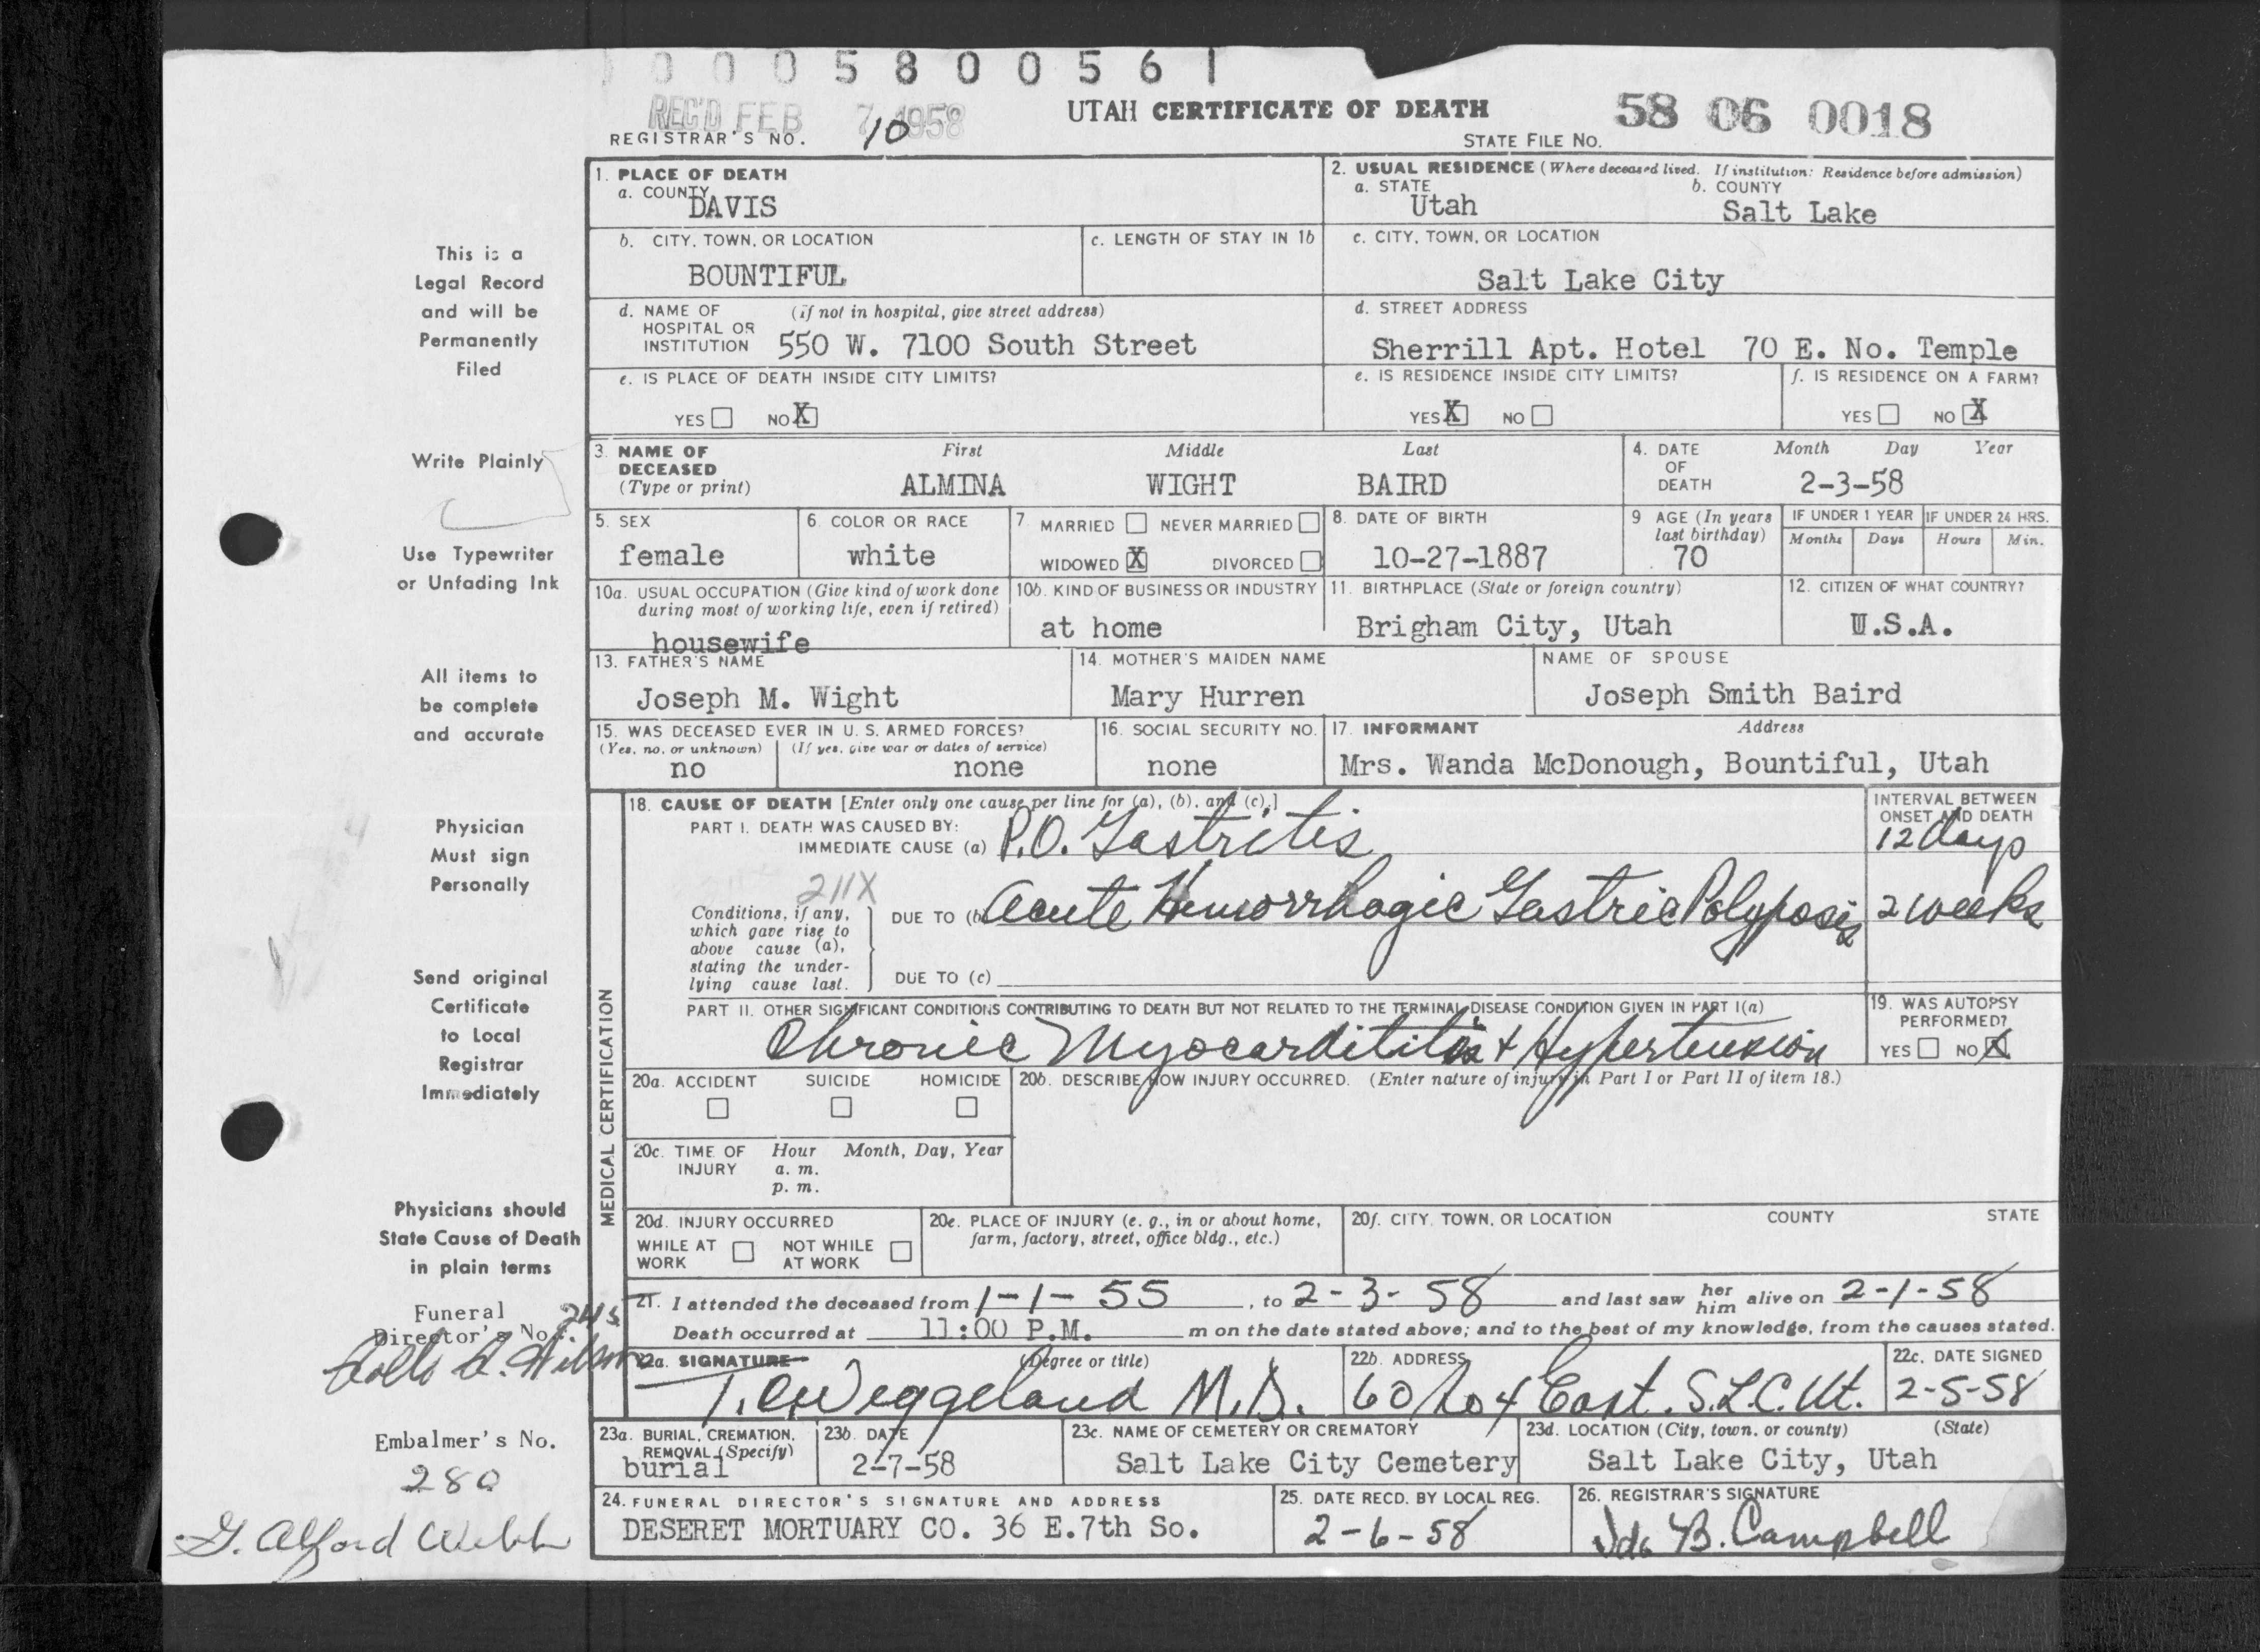 0 0 0 5 8 0 0 5 6 1
REC'D FEB 7 1958
UTAH CERTIFICATE OF DEATH
58 06 0018
REGISTRAR'S NO. 10
STATE FILE NO.
1. PLACE OF DEATH
a. COUNTY DAVIS
2. USUAL RESIDENCE (Where deceased lived. If institution: Residence before admission)
a. STATE Utah b. COUNTY Salt Lake
b. CITY, TOWN, OR LOCATION BOUNTIFUL
c. LENGTH OF STAY IN 1b
c. CITY, TOWN, OR LOCATION Salt Lake City
d. NAME OF HOSPITAL OR INSTITUTION (if not in hospital, give street address) 550 W. 7100 South Street
d. STREET ADDRESS Sherrill Apt. Hotel 70 E. No. Temple
e. IS PLACE OF DEATH INSIDE CITY LIMITS? YES NO X
e. IS RESIDENCE INSIDE CITY LIMITS? YES X NO
f. IS RESIDENCE ON A FARM? YES NO X
3. NAME OF DECEASED (Type or print) First Middle Last
ALMINA WIGHT BAIRD
4. DATE OF DEATH Month Day Year
2-3-58
5. SEX female
6. COLOR OR RACE white
7 MARRIED NEVER MARRIED WIDOWED X DIVORCED
8. DATE OF BIRTH 10-27-1887
9 AGE (In years last birthday) 70
IF UNDER 1 YEAR Months Days
IF UNDER 24 HRS. Hours Min.
10a. USUAL OCCUPATION (Give kind of work done during most of working life, even if retired) housewife
10b. KIND OF BUSINESS OR INDUSTRY at home
11. BIRTHPLACE (State or foreign country) Brigham City, Utah
12. CITIZEN OF WHAT COUNTRY? U.S.A.
13. FATHER'S NAME Joseph M. Wight
14. MOTHER'S MAIDEN NAME Mary Hurren
NAME OF SPOUSE Joseph Smith Baird
15. WAS DECEASED EVER IN U. S. ARMED FORCES?
(Yes, no, or unknown) no (If yes, give war or dates of service) none
16. SOCIAL SECURITY NO. none
17. INFORMANT Address
Mrs. Wanda McDonough, Bountiful, Utah
MEDICAL CERTIFICATION
18. CAUSE OF DEATH [Enter only one cause per line for (a), (b), and (c).]
INTERVAL BETWEEN ONSET AND DEATH
PART I. DEATH WAS CAUSED BY:
IMMEDIATE CAUSE (a) P.O. Gastritis 12 days
211X
Conditions, if any, which gave rise to above cause (a), stating the underlying cause last.
DUE TO (b) Acute Hemorrhagic Gastric Polyposis 2 weeks
DUE TO (c)
PART II. OTHER SIGNIFICANT CONDITIONS CONTRIBUTING TO DEATH BUT NOT RELATED TO THE TERMINAL DISEASE CONDITION GIVEN IN PART I(a)
Chronic Myocardititis + Hypertension
19. WAS AUTOPSY PERFORMED? YES NO X
20a. ACCIDENT SUICIDE HOMICIDE
20b. DESCRIBE HOW INJURY OCCURRED. (Enter nature of injury in Part I or Part II of item 18.)
20c. TIME OF INJURY Hour Month, Day, Year
a. m.
p. m.
20d. INJURY OCCURRED
WHILE AT WORK NOT WHILE AT WORK
20e. PLACE OF INJURY (e. g., in or about home, farm, factory, street, office bldg., etc.)
20f. CITY, TOWN, OR LOCATION COUNTY STATE
21. I attended the deceased from 1-1-55, to 2-3-58 and last saw her him alive on 2-1-58
Death occurred at 11:00 P.M. m on the date stated above; and to the best of my knowledge, from the causes stated.
22a. SIGNATURE (Degree or title)
T. C. Weggeland M.D.
22b. ADDRESS 60 No 4 East. S.L.C. Ut.
22c. DATE SIGNED 2-5-58
23a. BURIAL, CREMATION, REMOVAL (Specify) burial
23b. DATE 2-7-58
23c. NAME OF CEMETERY OR CREMATORY Salt Lake City Cemetery
23d. LOCATION (City, town, or county) (State)
Salt Lake City, Utah
24. FUNERAL DIRECTOR'S SIGNATURE AND ADDRESS
DESERET MORTUARY CO. 36 E.7th So.
25. DATE RECD. BY LOCAL REG. 2-6-58
26. REGISTRAR'S SIGNATURE
Ida B. Campbell
This is a
Legal Record
and will be
Permanently
Filed
Write Plainly
Use Typewriter
or Unfading Ink
All items to
be complete
and accurate
Physician
Must sign
Personally
Send original
Certificate
to Local
Registrar
Immediately
Physicians should
State Cause of Death
in plain terms
Funeral
Director's No.
Embalmer's No.
280
G. Alford Webb